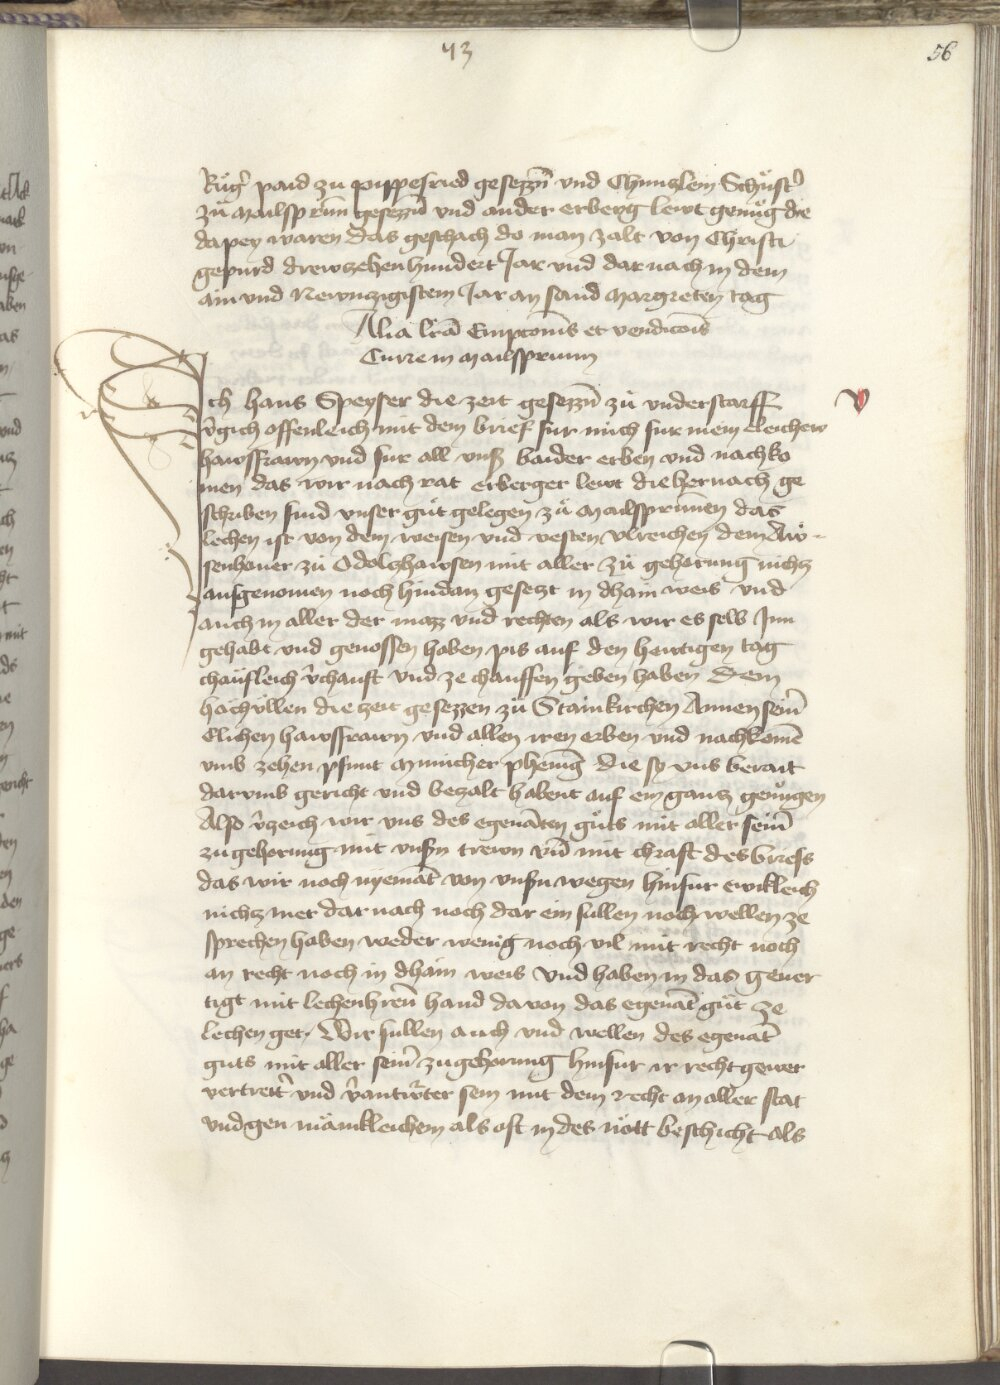 43
56
Rüg̉ paid zu pippesried gesezzn̄ vnd Chunczlein Schüst̉
zů Mailspr̄un gesezzn̄ vnd ander erberg lewt genůg die
dapey waren das geschach do man zalt von Christi
gepurd drewzehenhundert Jar vnd dar nach in dem
ain vnd Newnczigistem Jar an sand Margreten tag
Alia lr̄a Empcōnis et vendicōis
Curre in Mailsprunn
Ich Hans Speyser die zeit gesezzn̄ zů vnderstarff
v̉gich offenleich mit dem brief fur mich fur mein eleichew
hawsfrawn vnd fur all vnß baider erben vnd nachko
men das wir nach rat erberger lewt die hernach ge
schriben sind vnser gůt gelegen zů Mailsprunnen das
lechen ist von dem weisen vnd vesten vlreichen dem Aw-
senhouer zů Odolczhawsen mit aller zů gehorung nichtz
ausgenomen noch hindan gesetzt in dhain weis vnd
auch in aller der mazz vnd rechten als wir es selb Inn
gehabt vnd genossen haben pis auf den hewtigen tag
chaufleich v̉chauft vnd ze chauffen geben haben Dem
hachvllen die zeit gesezzen zů Stainkirchen Annen sein̉
Elichen hawsfrawn vnd allen iren erben vnd nachkomē
vmb zehen pfunt Municher phenīg die sy vns berait
darvmb gericht vnd bezalt habent auf ein gantz genůgen
Also v̉zeich wir vns des egenātten gůts mit aller sein̉
zugehorung mit vnsn̄ trewn vn̄ mit chraft des briefs
das wir noch nyemāt von vnsn̄ wegen hinfur ewikleich
nichtz mer dar nach noch dar ein sullen noch wellen ze
sprechen haben weder wenig noch vil mit recht noch
an recht noch in dhain weis Vnd haben in das geuer
tigt mit lechenhern̄ hand da von das egenāt gůt ze
lechen get. Wir sullen auch vnd wellen des egenāt
guts mit aller sein̉ zugehorung hinfur ir recht gewer
vertret̉ vnd v̉antw̉rter sein mit dem recht an aller stat
vnd gen mänikleichem als oft in des nött beschicht als